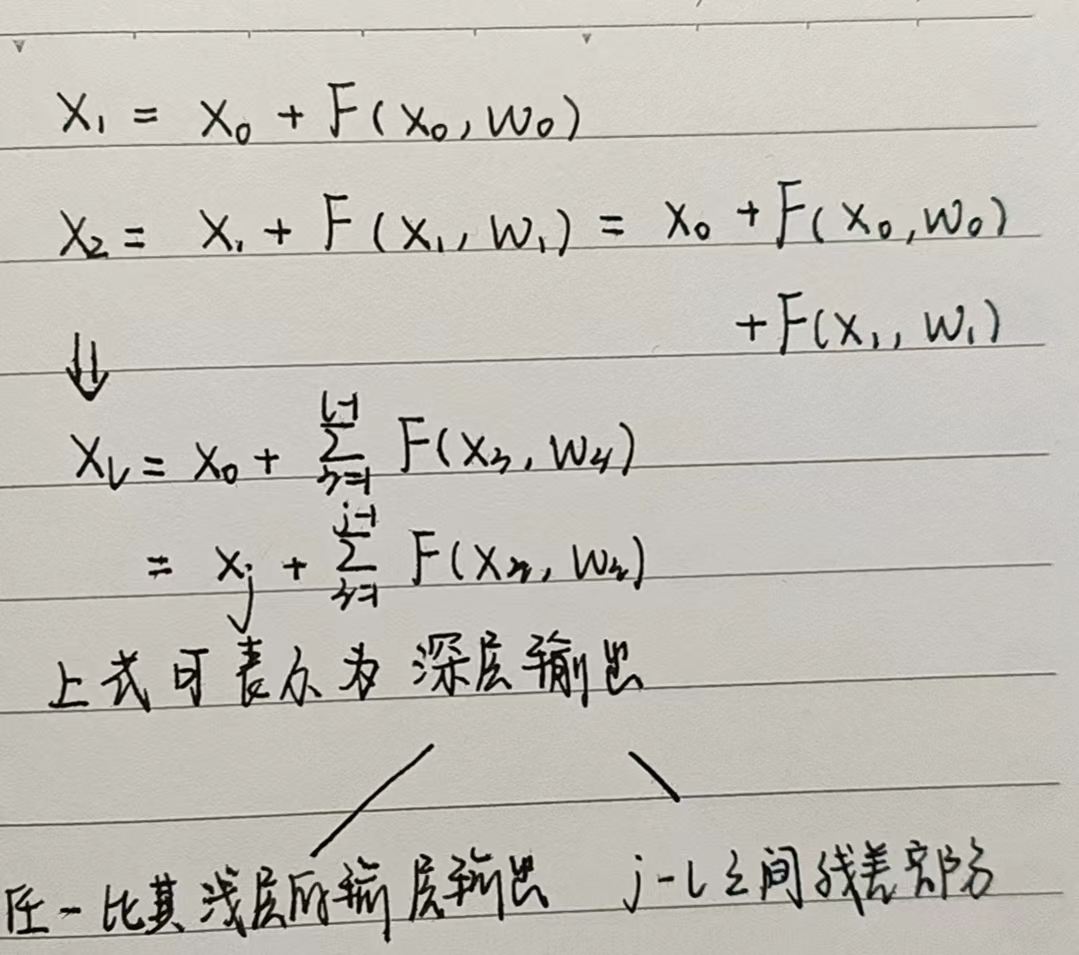 X₁ = X₀ + F(X₀, W₀)
X₂ = X₁ + F(X₁, W₁) = X₀ + F(X₀, W₀)
+ F(X₁, W₁)
⇓
l-1
X_l = X₀ + Σ F(X, W)
=1
j-1
= X_j + Σ F(X, W)
=1
上式可表示为 深层输出
任一比其浅层的 层输出 j-l之间残差部分